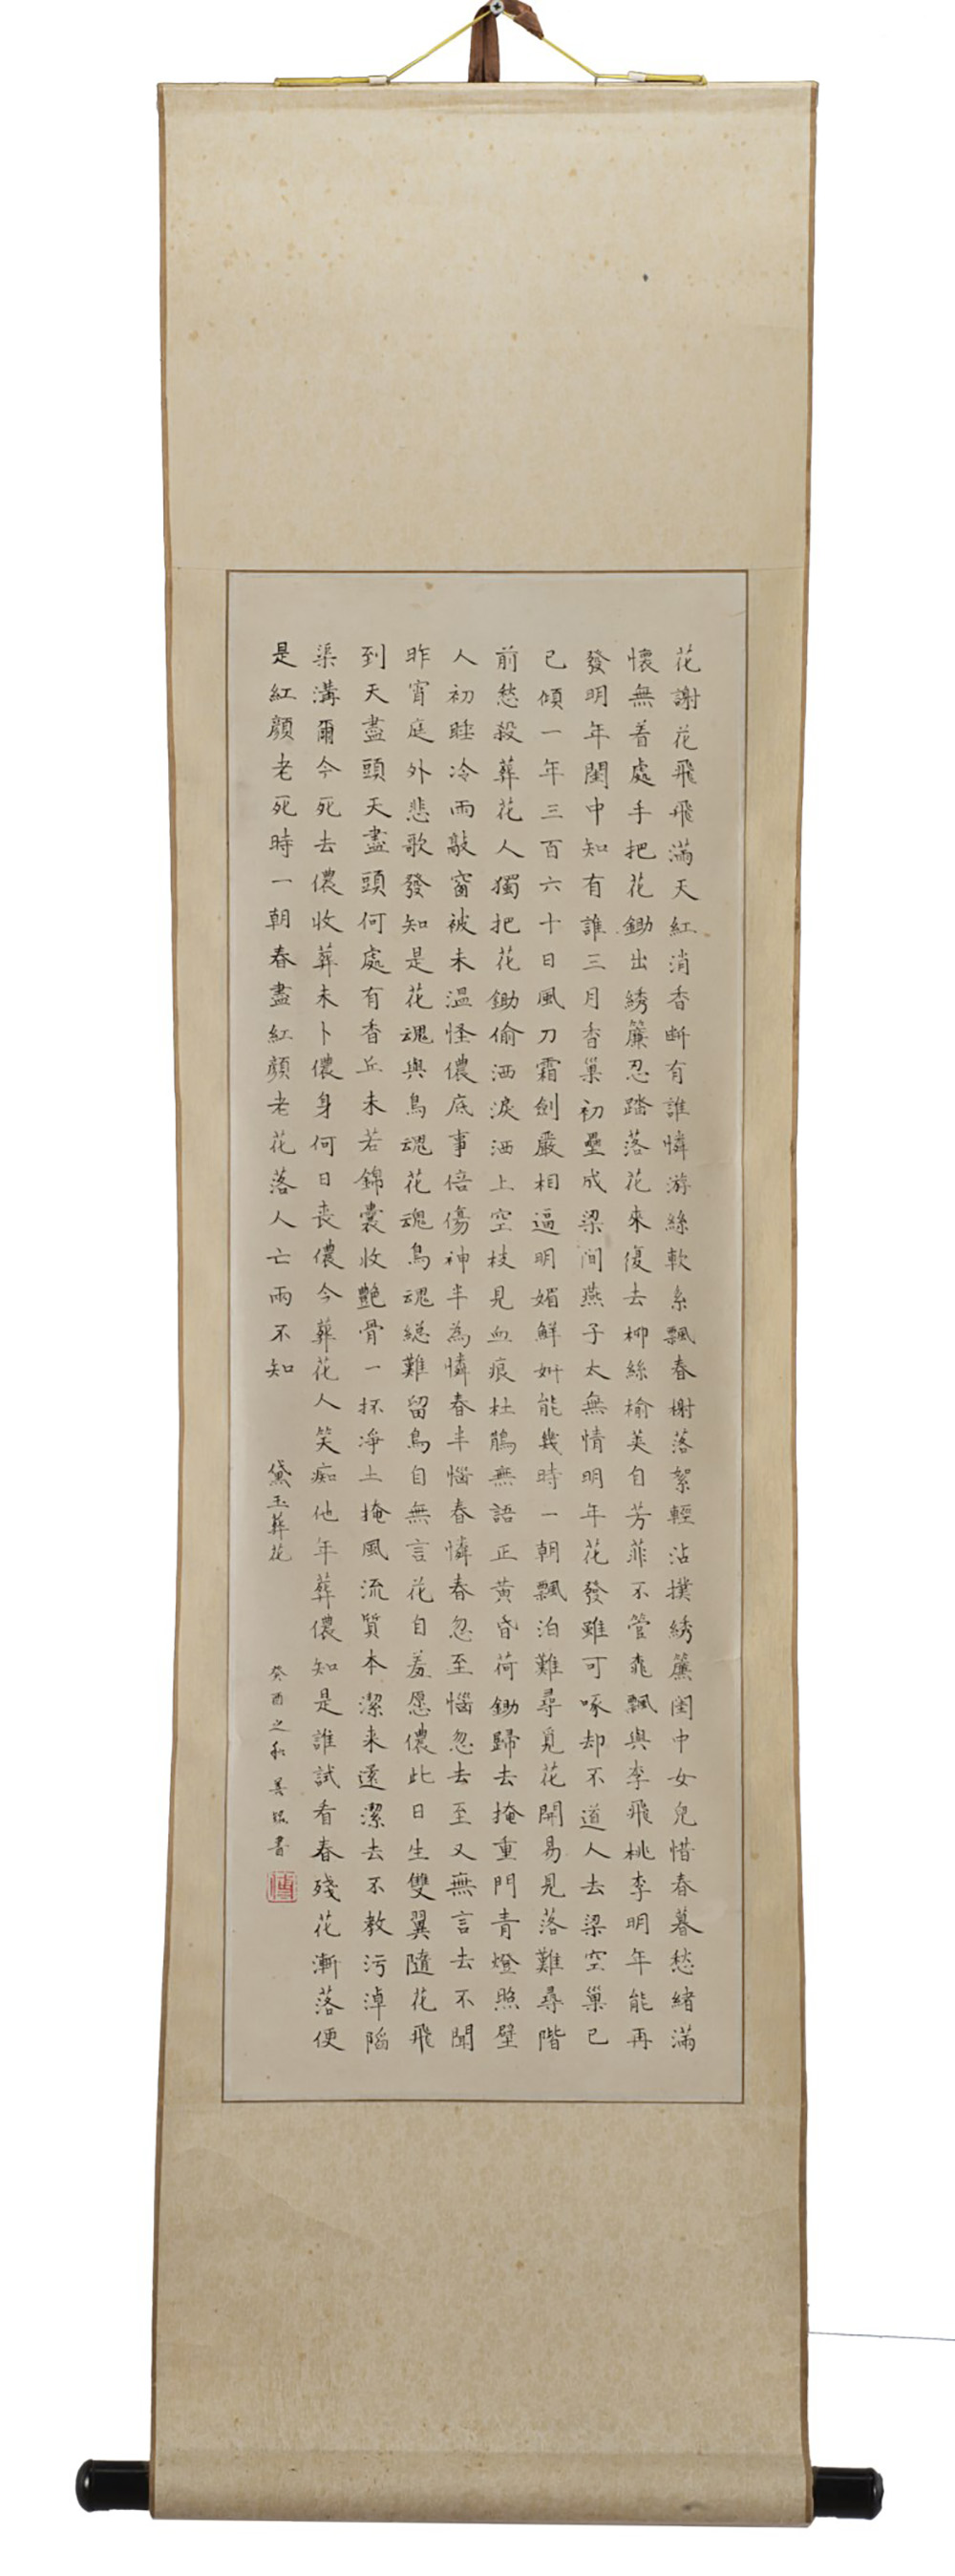 花謝花飛飛滿天紅消香断有誰憐游絲軟系飄春榭落絮輕沾撲綉簾閨中女兒惜春暮愁緒滿
懷無着處手把花鋤出綉簾忍踏落花來復去柳絲榆英自芳菲不管飄與李飛桃李明年能再
發明年閨中知有誰三月香巢初壘成梁间燕子太無情明年花發雖可啄却不道人去梁空巢已
已傾一年三百六十日風刀霜劍嚴相逼明媚鮮妍能幾時一朝飄泊難尋覓花開易見落難尋階
前愁殺葬花人獨把花鋤偷洒淚洒上空枝見血痕杜鵑無語正黃昏荷鋤歸去掩重門青燈照壁
人初睡冷雨敲窗被未温怪儂底事倍傷神半為憐春半惱春憐春忽至惱忽去至又無言去不聞
昨宵庭外悲歌發知是花魂與鳥魂花魂鳥魂総難留鳥自無言花自羞愿儂此日生雙翼隨花飛
到天盡頭天盡頭何處有香丘未若錦囊收艷骨一抔淨土掩風流質本潔来還潔去不教污淖陷
渠溝爾今死去儂收葬未卜儂身何日丧儂今葬花人笑痴他年葬儂知是誰試看春殘花漸落便
是紅顏老死時一朝春盡紅顏老花落人亡兩不知
黛玉葬花
癸酉之秋 書